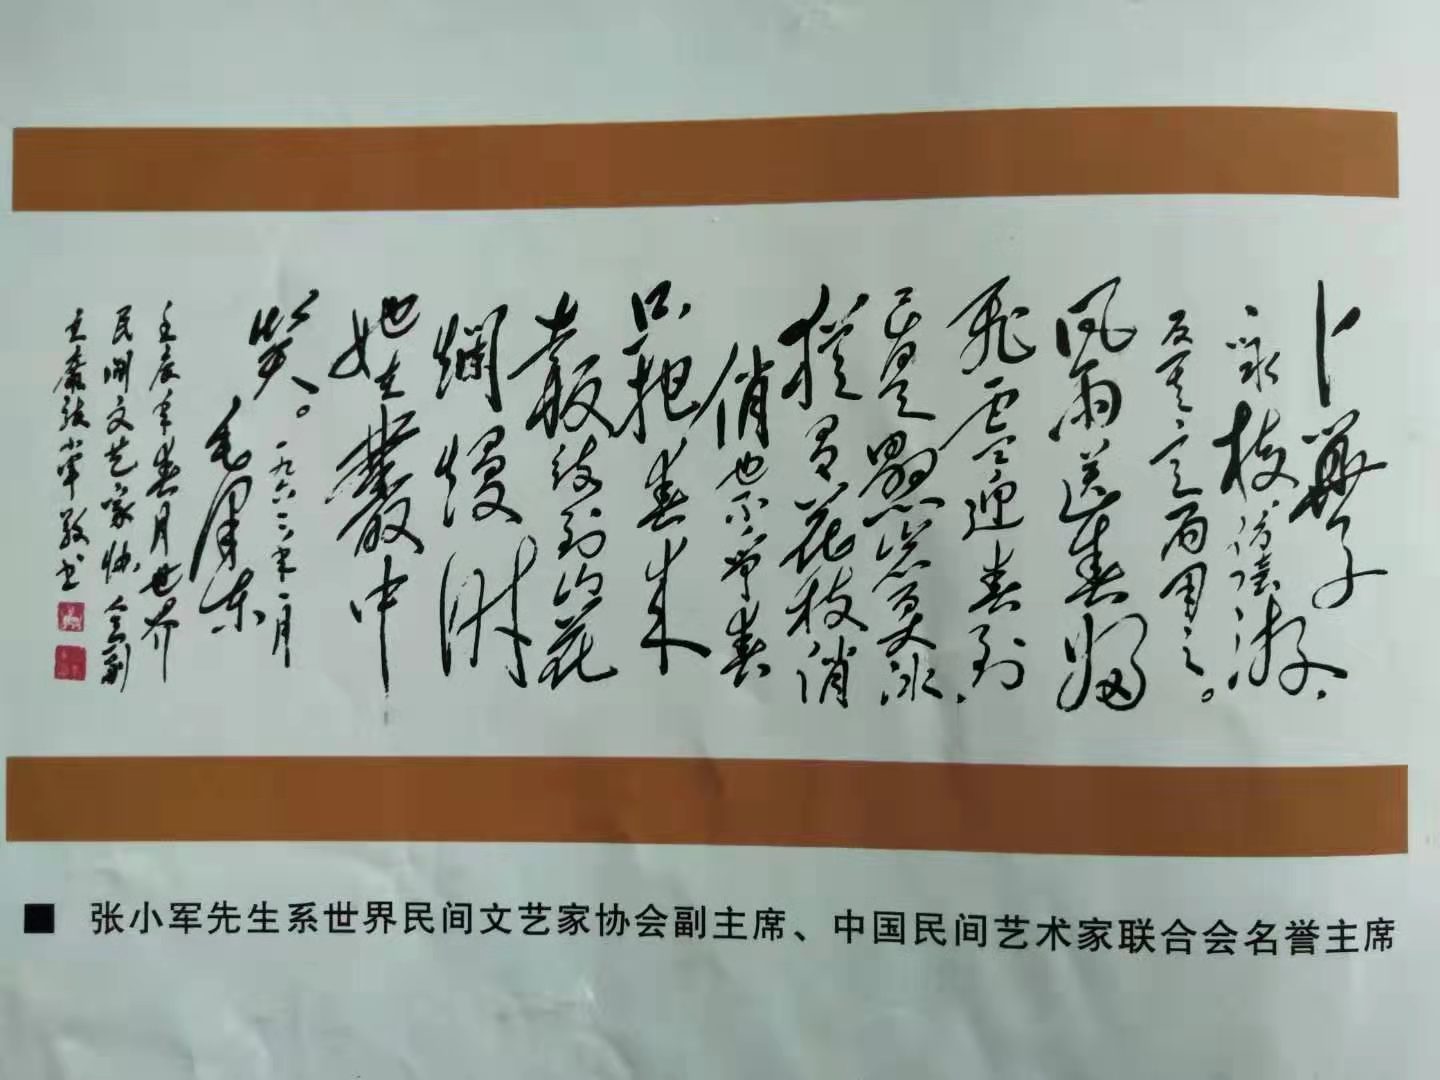 卜算子
咏梅、仿陸游、
反其意而用之。
风雨送春归
飛雪迎春到
已是懸崖百丈冰、
猶有花枝俏
俏也不争春
只把春来
報待到山花
爛漫时
她在叢中
笑。
一九六二年一月
毛泽东
壬辰年春月世界
民间文艺家协会副
主席张小军敬书
■ 张小军先生系世界民间文艺家协会副主席、中国民间艺术家联合会名誉主席